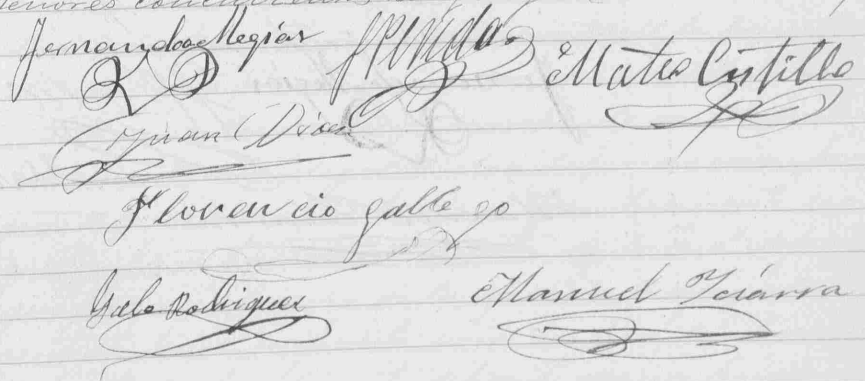 señores concurrentes
Fernando Megías Mateo Castillo
Juan Díaz
Florencio gallego
Galo Rodriguez Manuel